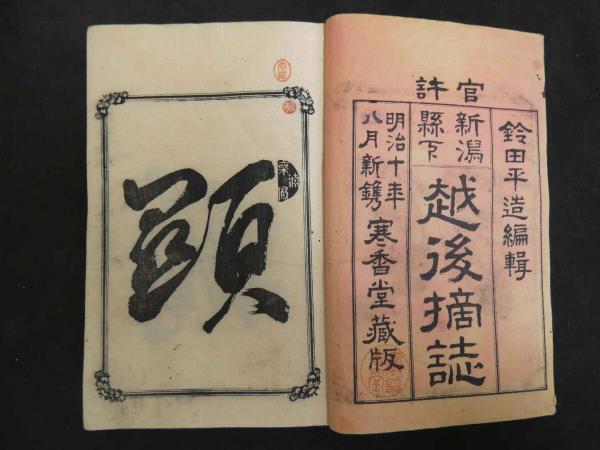 官許
鈴田平造編輯
新潟
縣下
越後摘誌
明治十年
八月新鐫
寒香堂藏版
顕